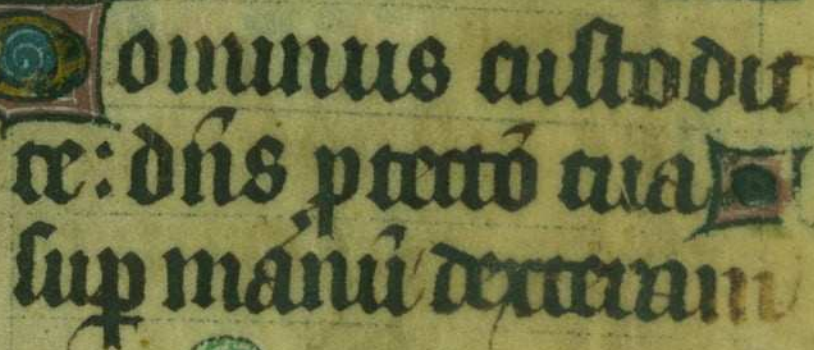 Dominus custodit
te: dn̄s ꝓtectō tua
suꝑ manū dexteram